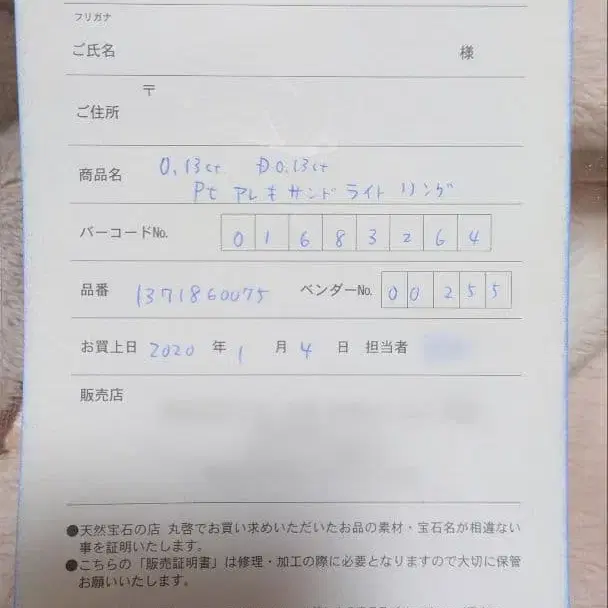 フリガナ
ご氏名 様
〒
ご住所
商品名 0.13ct D0.13ct
Pt アレキサンドライト リング
バーコード№ 01683264
品番 1371860075 ベンダー№ 00255
お買上日 2020 年 1 月 4 日 担当者
販売店
●天然宝石の店 丸啓でお買い求めいただいたお品の素材・宝石名が相違ない
事を証明いたします。
●こちらの「販売証明書」は修理・加工の際に必要となりますので大切に保管
お願いいたします。